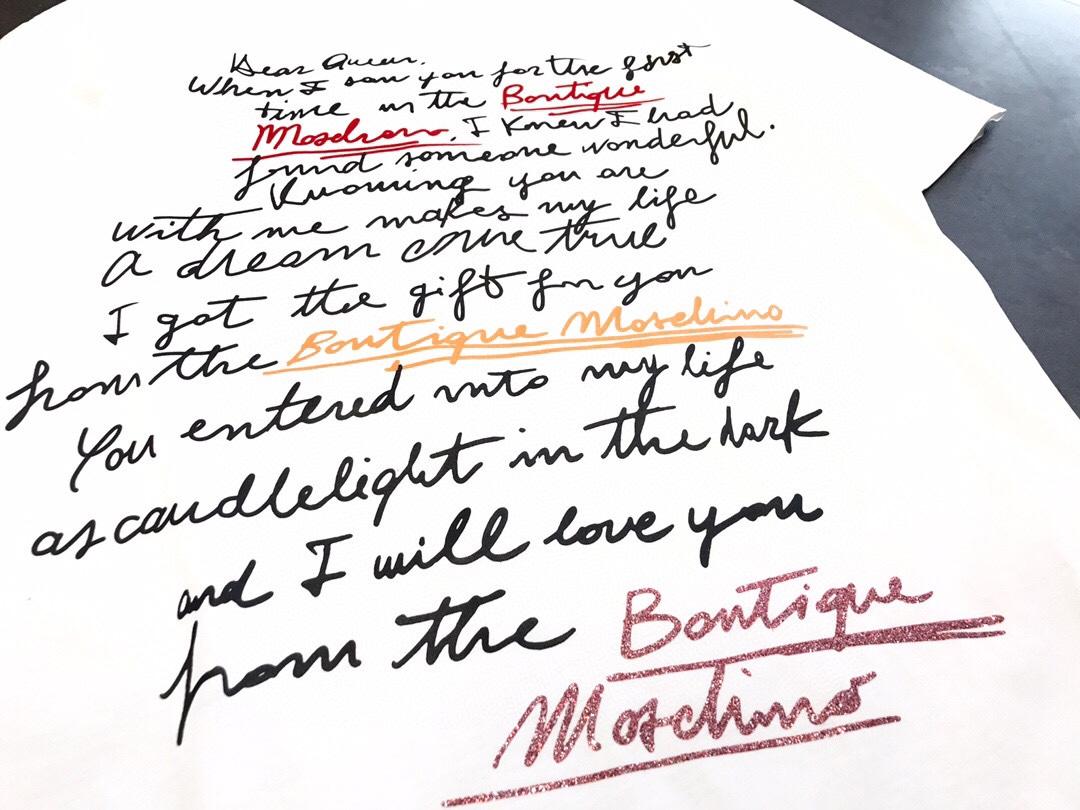 Dear Queen.
When I saw you for the first
time in the Boutique
Moschino. I Knew I had
found someone wonderful.
Knowing you are
with me makes my life
A dream come true
I got the gift for you
from the Boutique Moschino
You entered into my life
as candlelight in the dark
and I will love you
from the Boutique
Moschino